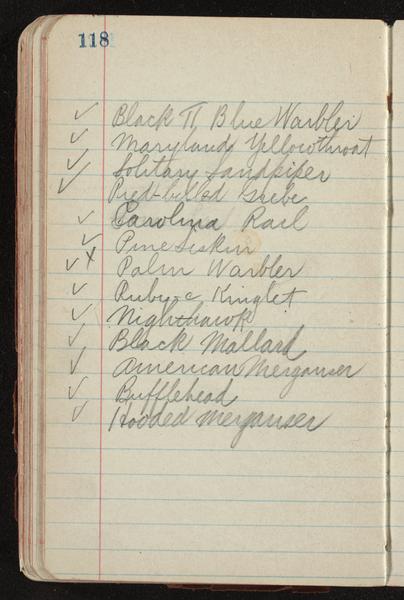 118
✓ Black Th Blue Warbler
✓ Maryland Yellowthroat
✓ Solitary Sandpiper
✓ Pied-billed Grebe
✓ Carolina Rail
✓ Pine Siskin
✓ X Palm Warbler
✓ Ruby-c Kinglet
✓ Nighthawk
✓ Black Mallard
✓ American Merganser
✓ Bufflehead
✓ Hooded Merganser